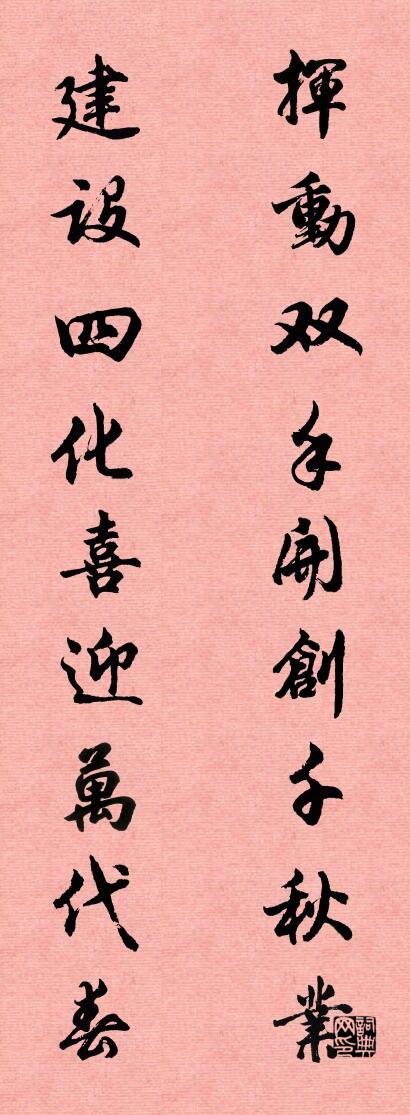 揮動双手開創千秋業
建設四化喜迎萬代春
詞典网印